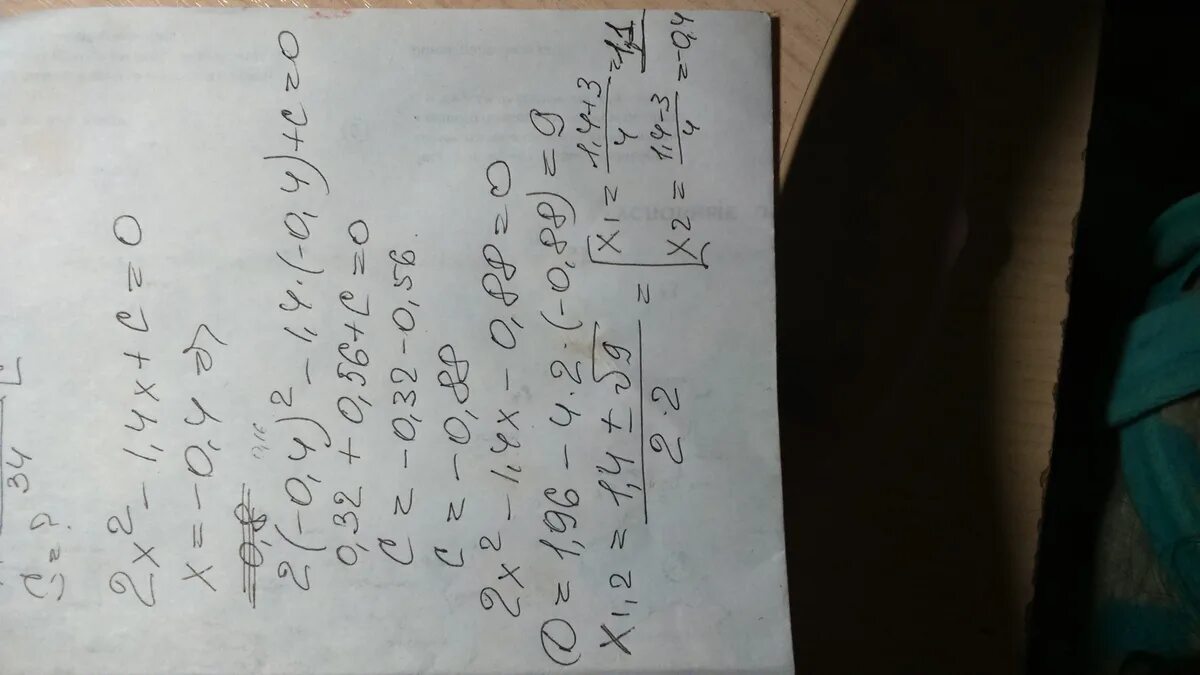 34
C = ?
2x² - 1,4x + C = 0
x = -0,4 ⇒
2(-0,4)² - 1,4·(-0,4) + C = 0
0,32 + 0,56 + C = 0
C = -0,32 - 0,56
C = -0,88
2x² - 1,4x - 0,88 = 0
D = 1,96 - 4·2·(-0,88) = 9
x1,2 = (1,4 ± √9) / (2·2) = [ x1 = (1,4+3)/4 = 1,1
x2 = (1,4-3)/4 = -0,4